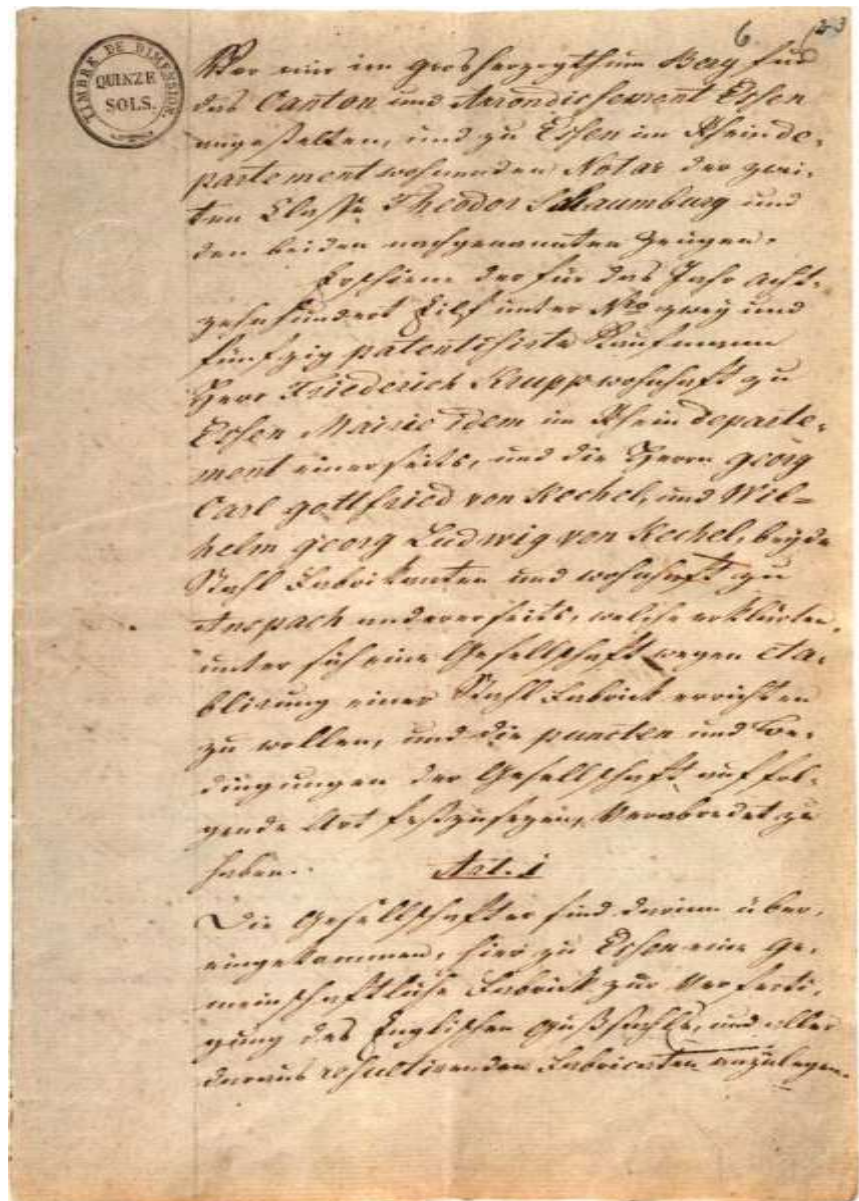 6 (23
TIMBRE DE DIMENSION.
QUINZE
SOLS.
Vor mir im Grosherzogthum Berg für
das Canton und Arrondissement Essen
angestelten, und zu Essen im Rheinde,
partement wohnenden Notar der zwei,
ten Classe Theodor Schaumburg und
den beiden nachgenannten Zeugen.
Erschiene der für das Jahr acht,
zehnhundert Eilf unter Nro zwey und
fünfzig patentisirte Kaufmann
Herr Friederich Krupp wohnhaft zu
Essen Mairie idem im Rhein departe,
ment einerseits, und die Herrn Georg
Carl Gottfried von Kechel, und Wil=
helm Georg Ludwig von Kechel, beyde
Stahl Fabrikanten und wohnhaft zu
Anspach andererseits, welche erklärten,
unter sich eine Gesellschaft wegen eta,
blirung einer Stahl Fabrick errichten
zu wollen, und die puncten und Be,
dingungen der Gesellschaft auf fol,
gende Art festzusezen, verabredet zu
haben.
Art. 1
Die Gesellschafter sind darinn über,
eingekommen, hier zu Essen eine ge,
meinschaftliche Fabrick zur Verferti,
gung des Englischen Gußstahls, und aller
daraus resultirenden Fabricaten anzulegen.